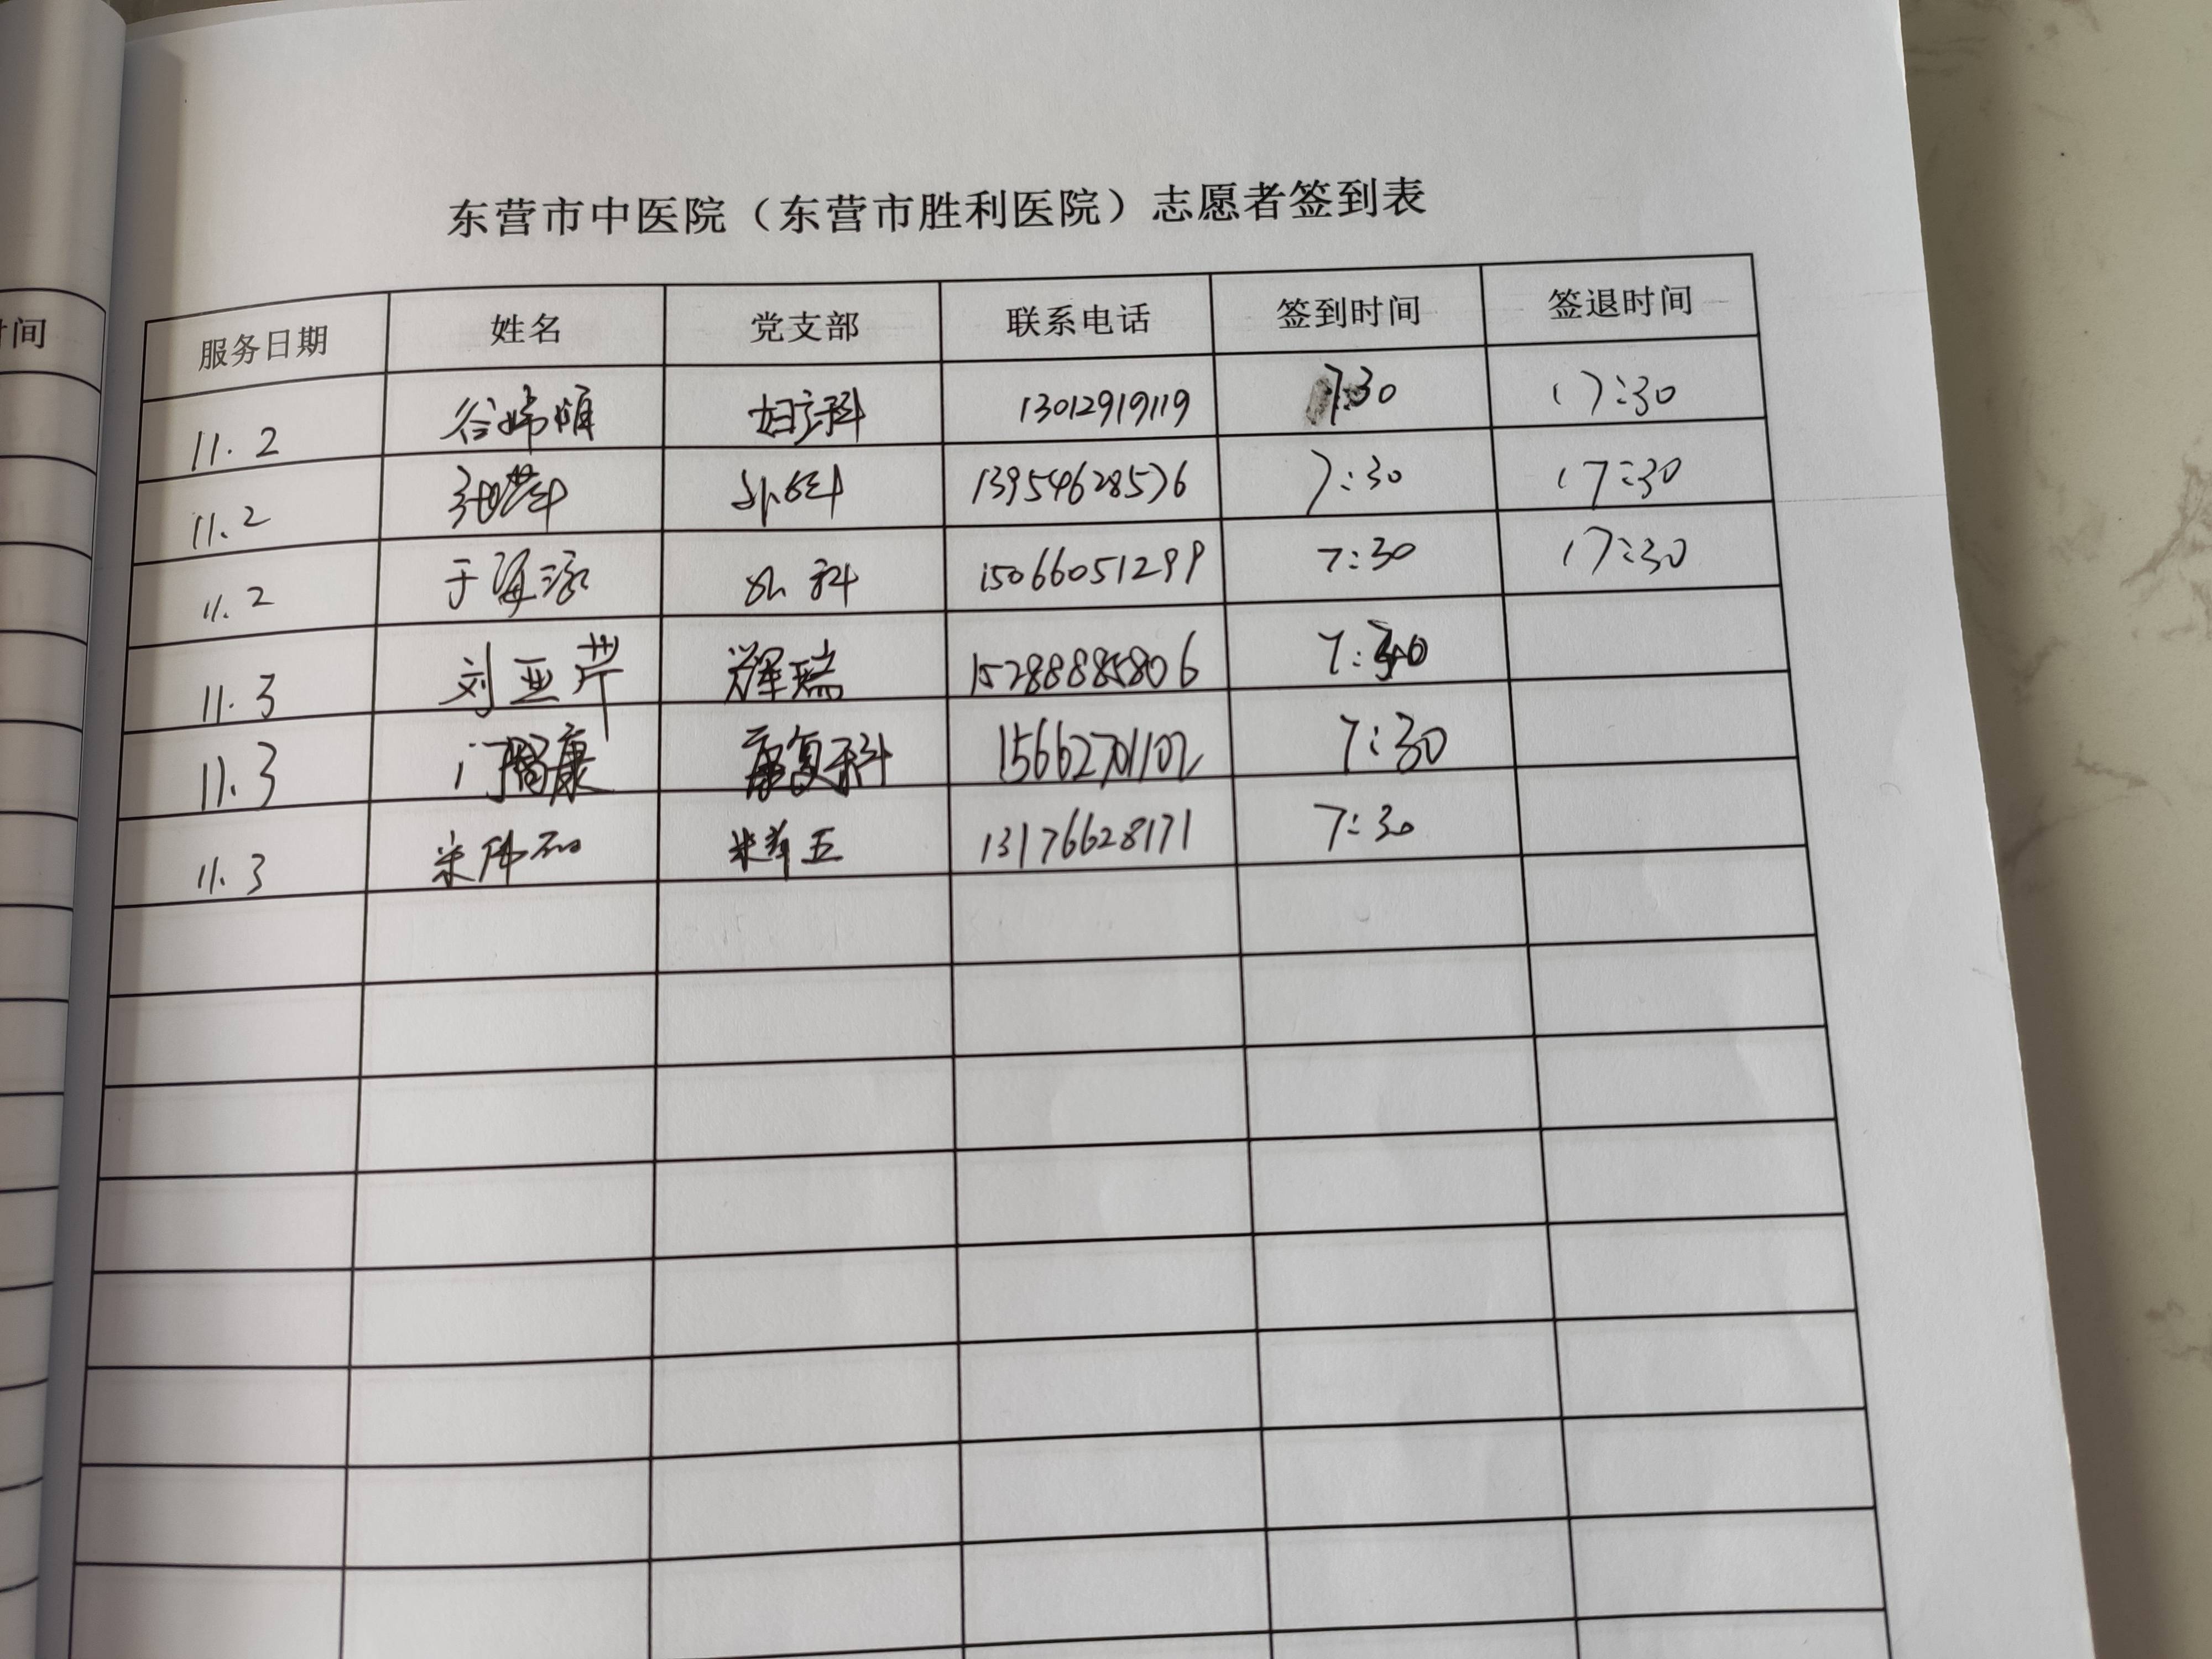 时间
东营市中医院（东营市胜利医院）志愿者签到表
服务日期 姓名 党支部 联系电话 签到时间 签退时间
11.2 妇科 13012919119 7:30 17:30
11.2 外科 13954628576 7:30 17:30
11.2 于海泳 外科 15066051299 7:30 17:30
11.3 刘亚芹 辉瑞 15288885806 7:30
11.3 康复科 15662701102 7:30
11.3 13176628171 7:30